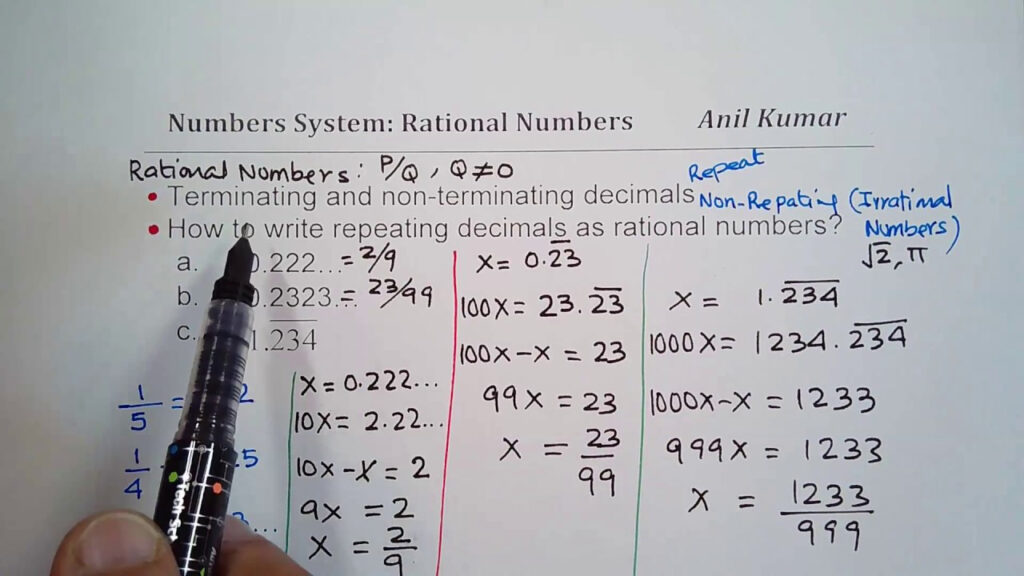 Numbers System: Rational Numbers Anil Kumar
Rational Numbers: P/Q, Q≠0
Repeat
• Terminating and non-terminating decimals Non-Repating (Irrational
• How to write repeating decimals as rational numbers? Numbers)
√2, π
a. 0.222... = 2/9
b. 0.2323... = 23/99
c. 1.2̅3̅4̅
1/5 =
1/4
.25
x = 0.222...
10x = 2.22...
10x-x = 2
9x = 2
x = 2/9
x = 0.2̅3̅
100x = 23.2̅3̅
100x-x = 23
99x = 23
x = 23/99
x = 1.2̅3̅4̅
1000x = 1234.2̅3̅4̅
1000x-x = 1233
999x = 1233
x = 1233/999